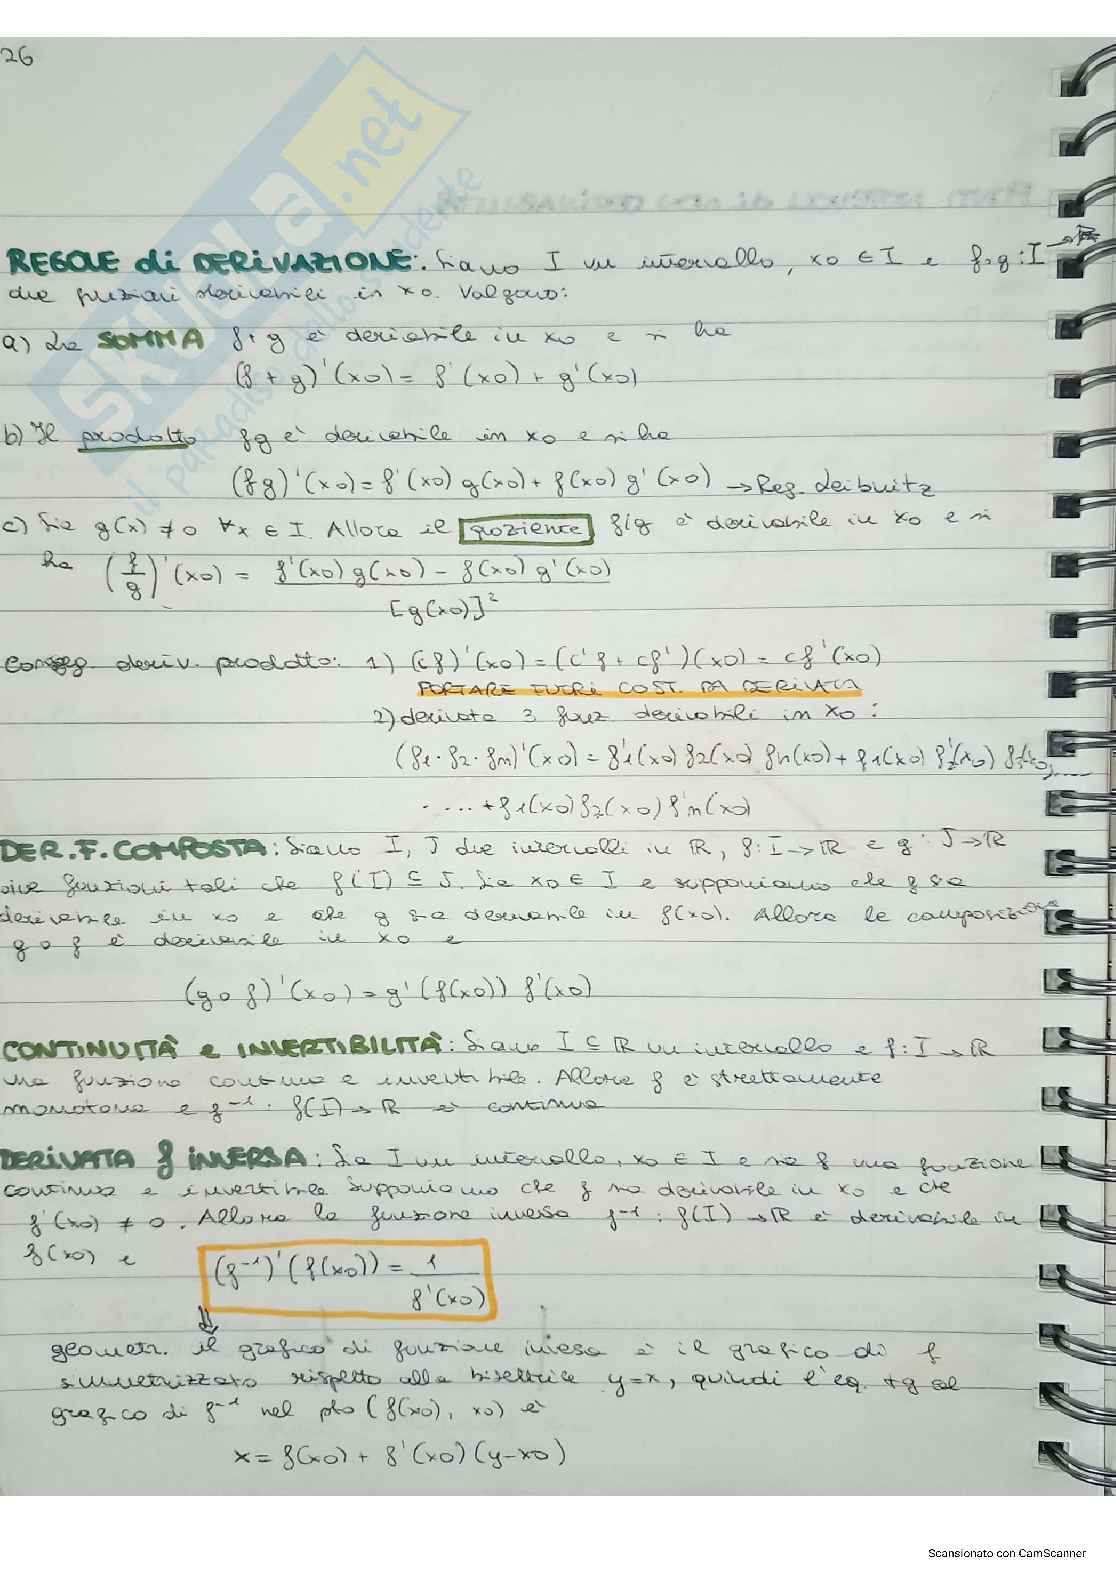 26
SKUOLA.net
il paradiso dello studente
REGOLE di DERIVAZIONE: Siano I un intervallo, x0 ∈ I e f,g : I → R
due funzioni derivabili in x0. Valgono:
a) La SOMMA f+g è derivabile in x0 e si ha
(f + g)'(x0) = f'(x0) + g'(x0)
b) Il prodotto fg è derivabile in x0 e si ha
(fg)'(x0) = f'(x0) g(x0) + f(x0) g'(x0) → Reg. Leibnitz
c) Sia g(x) ≠ 0 ∀x ∈ I. Allora il quoziente f/g è derivabile in x0 e si
ha (f/g)'(x0) = f'(x0) g(x0) - f(x0) g'(x0)
[g(x0)]²
Conseg. deriv. prodotto: 1) (cf)'(x0) = (c'f + cf')(x0) = cf'(x0)
PORTARE FUORI COST. DA DERIVATA
2) derivata 3 funz derivabili in x0:
(f1·f2·fn)'(x0) = f'1(x0) f2(x0) fn(x0) + f1(x0) f'2(x0) f3(x0)......
.... + f1(x0) f2(x0) f'n(x0)
DER. F. COMPOSTA: Siano I, J due intervalli in R, f: I → R e g: J → R
due funzioni tali che f(I) ⊆ J. Sia x0 ∈ I e supponiamo che f sia
derivabile in x0 e che g sia derivabile in f(x0). Allora la composizione
g o f è derivabile in x0 e
(g o f)'(x0) = g'(f(x0)) f'(x0)
CONTINUITÀ e INVERTIBILITÀ: Siano I ⊆ R un intervallo e f: I → R
una funzione continua e invertibile. Allora f è strettamente
monotona e f⁻¹: f(I) → R è continua
DERIVATA f INVERSA: Sia I un intervallo, x0 ∈ I e sia f una funzione
continua e invertibile supponiamo che f sia derivabile in x0 e che
f'(x0) ≠ 0. Allora la funzione inversa f⁻¹: f(I) → R è derivabile in
f(x0) e (f⁻¹)'(f(x0)) = 1
f'(x0)
geometr. il grafico di funzione inversa è il grafico di f
simmetrizzato rispetto alla bisettrice y=x, quindi l'eq. tg al
grafico di f⁻¹ nel pto (f(x0), x0) è
x = f(x0) + f'(x0)(y-x0)
Scansionato con CamScanner